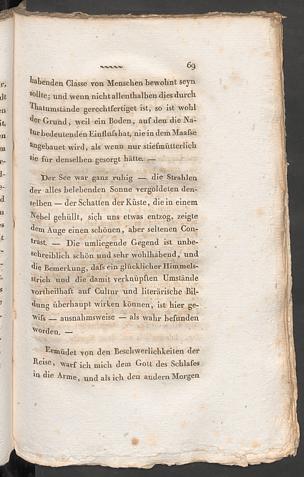 69
habenden Classe von Menschen bewohnt seyn
sollte; und wenn nicht allenthalben dies durch
Thatumstände gerechtfertiget ist, so ist wohl
der Grund, weil ein Boden, auf den die Na-
tur bedeutenden Einfluss hat, nie in dem Maasse
angebauet wird, als wenn nur stiefmütterlich
sie für denselben gesorgt hätte. —
Der See war ganz ruhig — die Strahlen
der alles belebenden Sonne vergoldeten den-
selben — der Schatten der Küste, die in einem
Nebel gehüllt, sich uns etwas entzog, zeigte
dem Auge einen schönen, aber seltenen Con-
trast. — Die umliegende Gegend ist unbe-
schreiblich schön und sehr wohlhabend, und
die Bemerkung, daſs ein glücklicher Himmels-
strich und die damit verknüpften Umstände
vortheilhaft auf Cultur und literärische Bil-
dung überhaupt wirken können, ist hier ge-
wiſs — ausnahmsweise — als wahr befunden
worden. —
Ermüdet von den Beschwerlichkeiten der
Reise, warf ich mich dem Gott des Schlafes
in die Arme, und als ich den andern Morgen